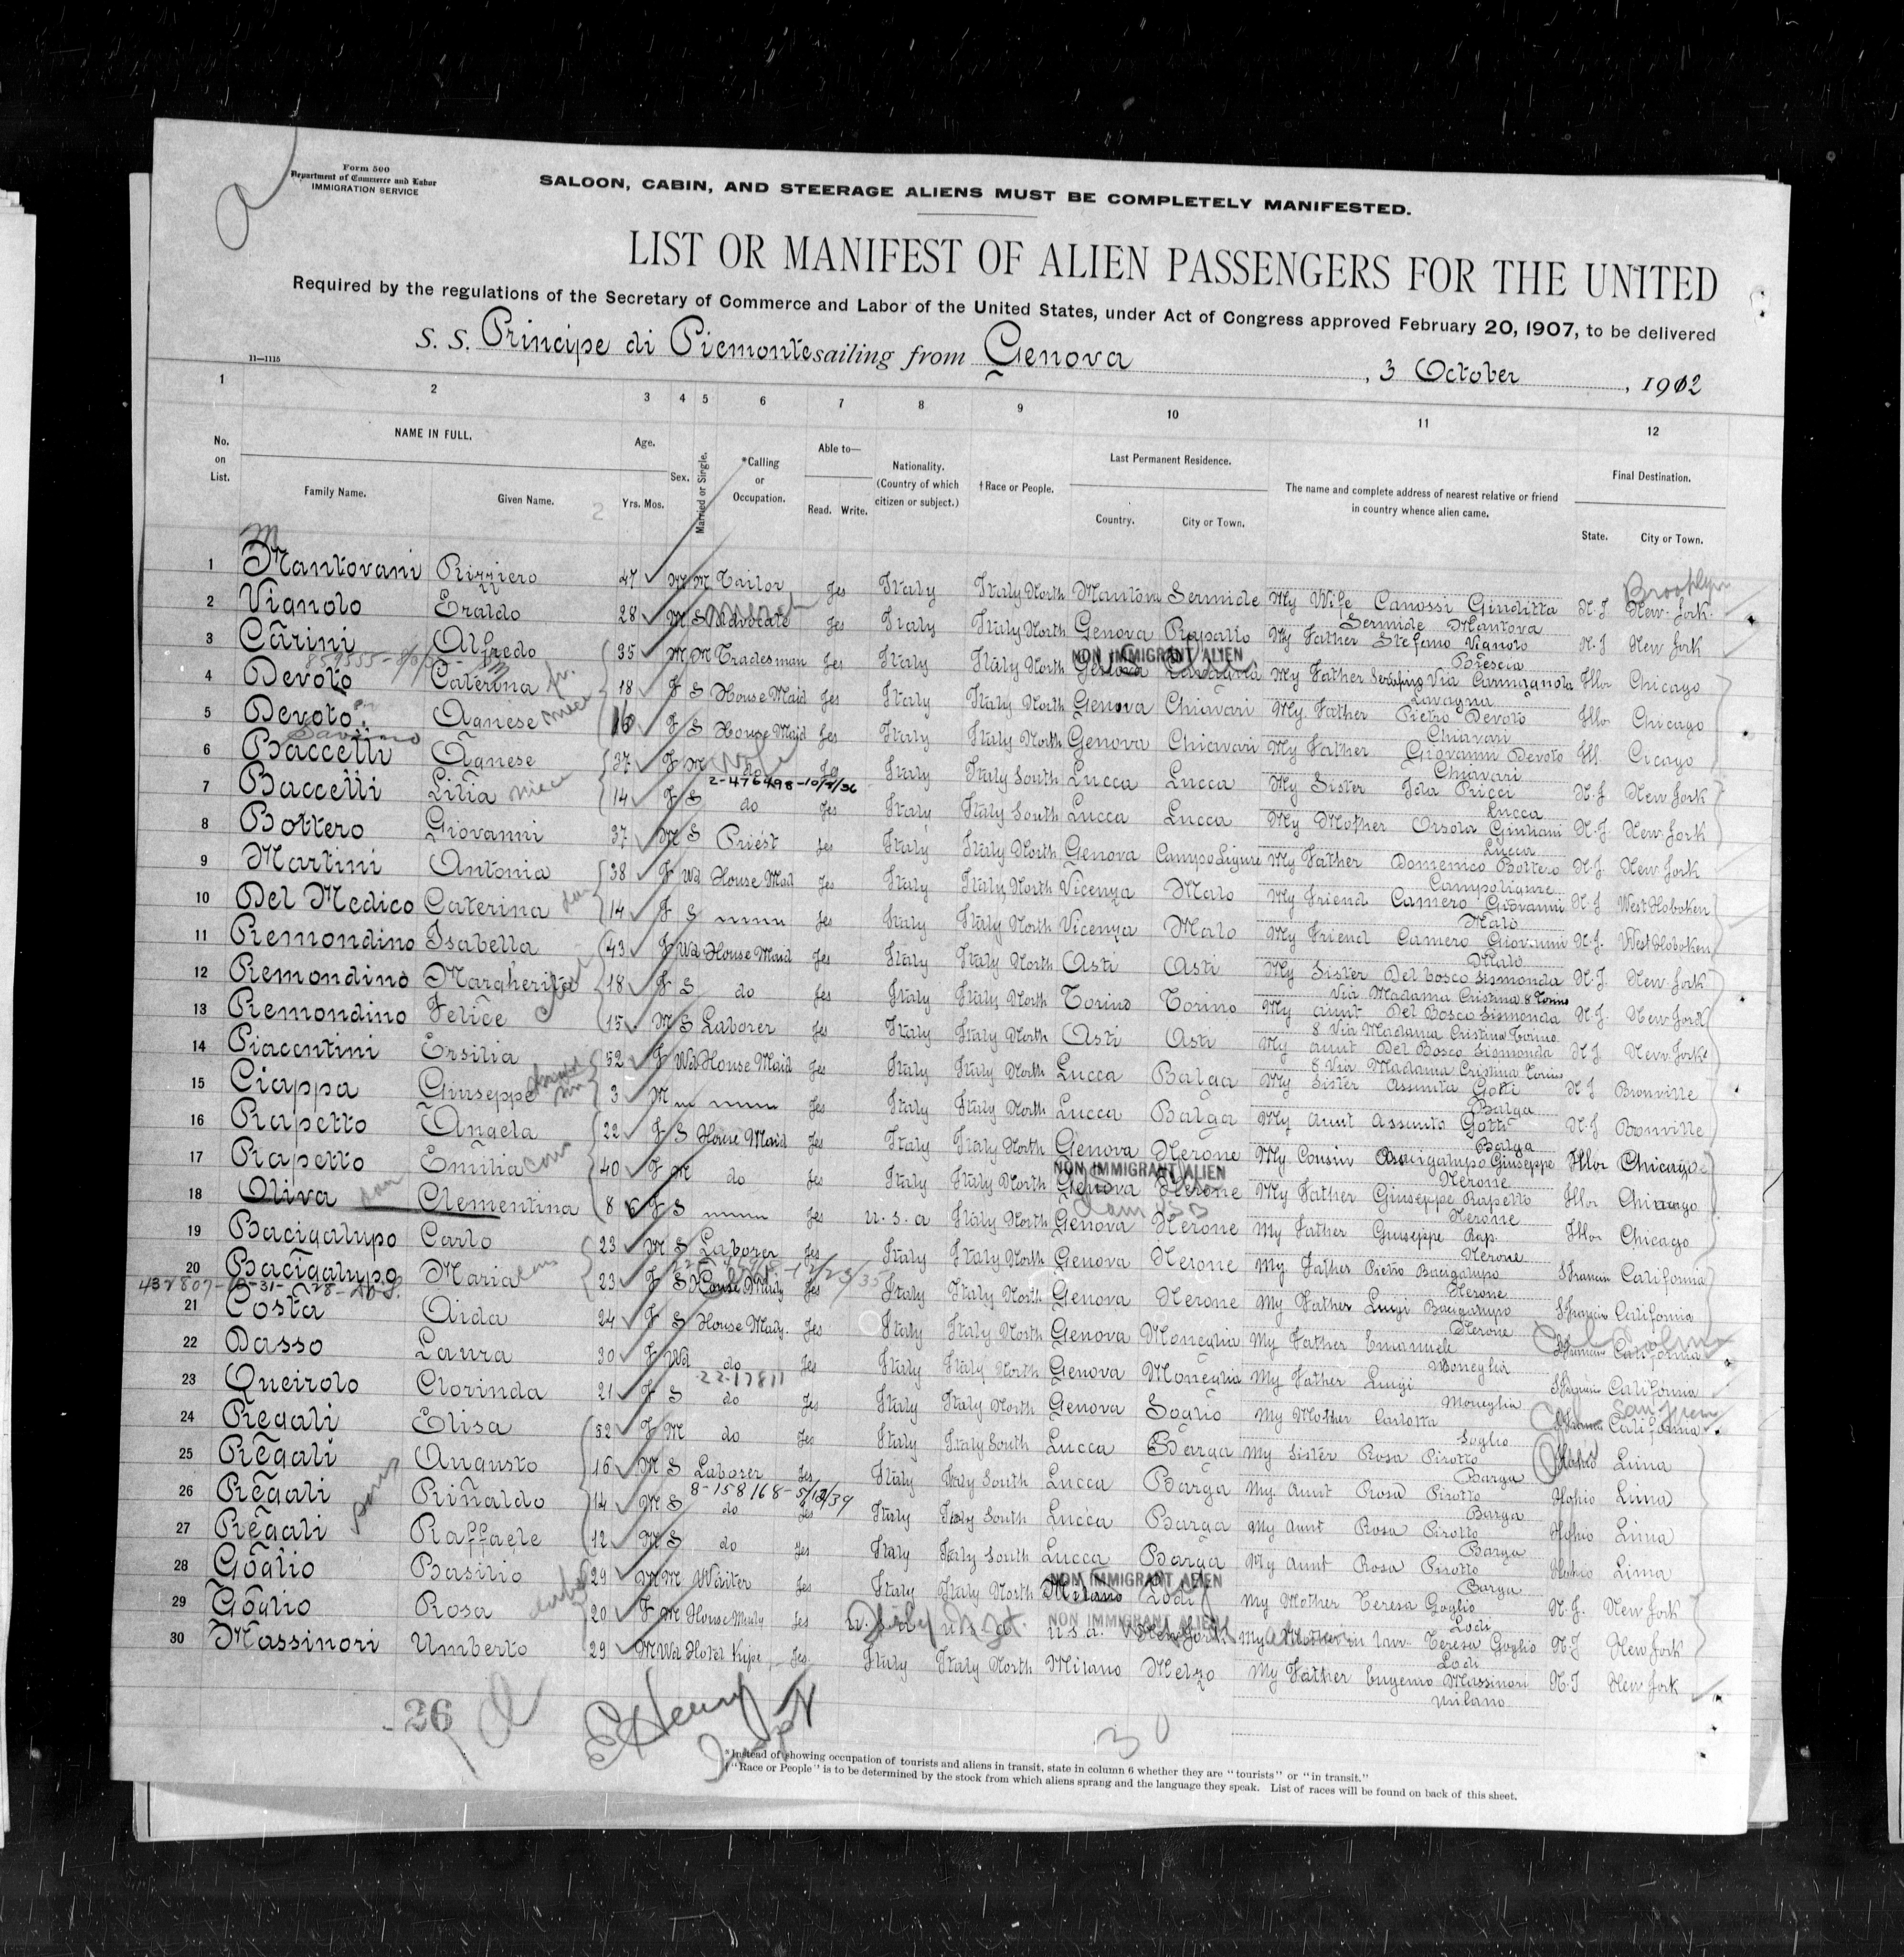 Form 500
Department of Commerce and Labor
IMMIGRATION SERVICE
SALOON, CABIN, AND STEERAGE ALIENS MUST BE COMPLETELY MANIFESTED.
LIST OR MANIFEST OF ALIEN PASSENGERS FOR THE UNITED
Required by the regulations of the Secretary of Commerce and Labor of the United States, under Act of Congress approved February 20, 1907, to be delivered
S. S. Principe di Piemonte sailing from Genova, 3 October, 1912
11—1115
1 2 3 4 5 6 7 8 9 10 11 12
No. on List. NAME IN FULL. Family Name. Given Name. Age. Yrs. Mos. Sex. Married or Single. *Calling or Occupation. Able to— Read. Write. Nationality. (Country of which citizen or subject.) †Race or People. Last Permanent Residence. Country. City or Town. The name and complete address of nearest relative or friend in country whence alien came. Final Destination. State. City or Town.
Brooklyn
1 Mantovani Rizziero 47 M M Tailor Jes Italy Italy North Mantova Sermide My Wife Canossi Giuditta N.J. New-Jork.
Sermide Mantova
2 Vignolo Eraldo 28 M S Advocate Jes Italy Italy North Genova Rapallo My Father Stefano Vignolo N.J New Jork
Brescia
NON IMMIGRANT ALIEN
3 Carini Alfredo 35 M M Tradesman Jes Italy Italy North Genova My Father Serafino Via Carmagnola Illor Chicago
Lavagna
4 Devoto Caterina 18 F S House Maid Jes Italy Italy North Genova Chiavari My Father Pietro Devoto Illor Chicago
Chiavari
5 Devoto Agnese niece 16 F S House Maid Jes Italy Italy North Genova Chiavari My Father Giovanni Devoto Ill. Cicago
Chiavari
6 Baccelli Agnese 37 F M do Jes Italy Italy South Lucca Lucca My Sister Ida Ricci N.J New Jork
Lucca
2-476498-10/8/36
7 Baccelli Lilia niece 14 F S do Jes Italy Italy South Lucca Lucca My Mother Orsola Giuliani N.J. New Jork
Lucca
8 Bottero Giovanni 37 M S Priest Jes Italy Italy North Genova Campo Ligure My Father Domenico Bottero N.J. New Jork
Campoligure
9 Martini Antonia 38 F Wd House Maid Jes Italy Italy North Vicenza Malo My Friend Camero Giovanni N.J West Hoboken
Malo
10 Del Medico Caterina 14 F S Jes Italy Italy North Vicenza Malo My Friend Camero Giovanni N.J. West Hoboken
Malo
11 Remondino Isabella 43 F Wd House Maid Jes Italy Italy North Asti Asti My Sister Del bosco Sismonda N.J. New Jork
Via Madama Cristina 8 Torino
12 Remondino Margherita 18 F S do Jes Italy Italy North Torino Torino My aunt Del Bosco Sismonda N.J. New Jork
8 Via Madama Cristina Torino
13 Remondino Felice 15 M S Laborer Jes Italy Italy North Asti Asti My aunt Del Bosco Sismonda N.J New-Jork
8 Via Madama Cristina Torino
14 Piacentini Ersilia 52 F Wd House Maid Jes Italy Italy North Lucca Balga My Sister Assunta Gotti N.J Bronville
Balga
15 Ciappa Giuseppe 3 M Jes Italy Italy North Lucca Balga My Aunt Assunto Gotti N.J Bronville
Balga
16 Rapetto Angela 22 F S House Maid Jes Italy Italy North Genova Nerone My Cousin Bacigalupo Giuseppe Illor Chicago
Nerone
NON IMMIGRANT ALIEN
17 Rapetto Emilia 40 F M do Jes Italy Italy North Genova Nerone My Father Giuseppe Rapetto Illor Chicago
Nerone
18 Oliva Clementina 8 F S Jes u. s. a Italy North Genova Nerone My Father Giuseppe Rap. Illor Chicago
Nerone
19 Bacigalupo Carlo 23 M S Laborer Jes Italy Italy North Genova Nerone My Father Pietro Bacigalupo S Francisco California
Nerone
20 Bacigalupo Maria 23 F S House Mady Jes Italy Italy North Genova Nerone My Father Luigi Bacigalupo S Francisco California
Nerone
21 Costa Aida 24 F S House Mady. Jes Italy Italy North Genova Moneglia My Father Emanuele S Francisco California
Moneglia
22 Dasso Laura 30 F Wd do Jes Italy Italy North Genova Moneglia My Father Luigi S Francisco California
Moneglia
22-17811
23 Queirolo Clorinda 21 F S do Jes Italy Italy North Genova Soglio My Mother Carlotta S Francisco California
Soglio
24 Regali Elisa 52 F M do Jes Italy Italy South Lucca Barga My Sister Rosa Pirotto Hohio Lima
Barga
25 Regali Augusto 16 M S Laborer Jes Italy Italy South Lucca Barga My Aunt Rosa Pirotto Hohio Lima
Barga
26 Regali Rinaldo 14 M S do Jes Italy Italy South Lucca Barga My Aunt Rosa Pirotto Hohio Lima
Barga
27 Regali Raffaele 12 M S do Jes Italy Italy South Lucca Barga My Aunt Rosa Pirotto Hohio Lima
Barga
NON IMMIGRANT ALIEN
28 Goglio Basilio 29 M M Waiter Jes Italy Italy North Milano Lodi My Mother Teresa Goglio N.J. New Jork
Lodi
NON IMMIGRANT ALIEN
29 Goglio Rosa 20 F M House Mady Jes u.s.a. u.s.a. New Jork My Mother in law Teresa Goglio N.J New Jork
Lodi
30 Massinori Umberto 29 M Wd Hotel Jes Italy Italy North Milano Melzo My Father Eugenio Massinori N.J New Jork
Milano
26
30
*Instead of showing occupation of tourists and aliens in transit, state in column 6 whether they are "tourists" or "in transit."
†"Race or People" is to be determined by the stock from which aliens sprang and the language they speak. List of races will be found on back of this sheet.